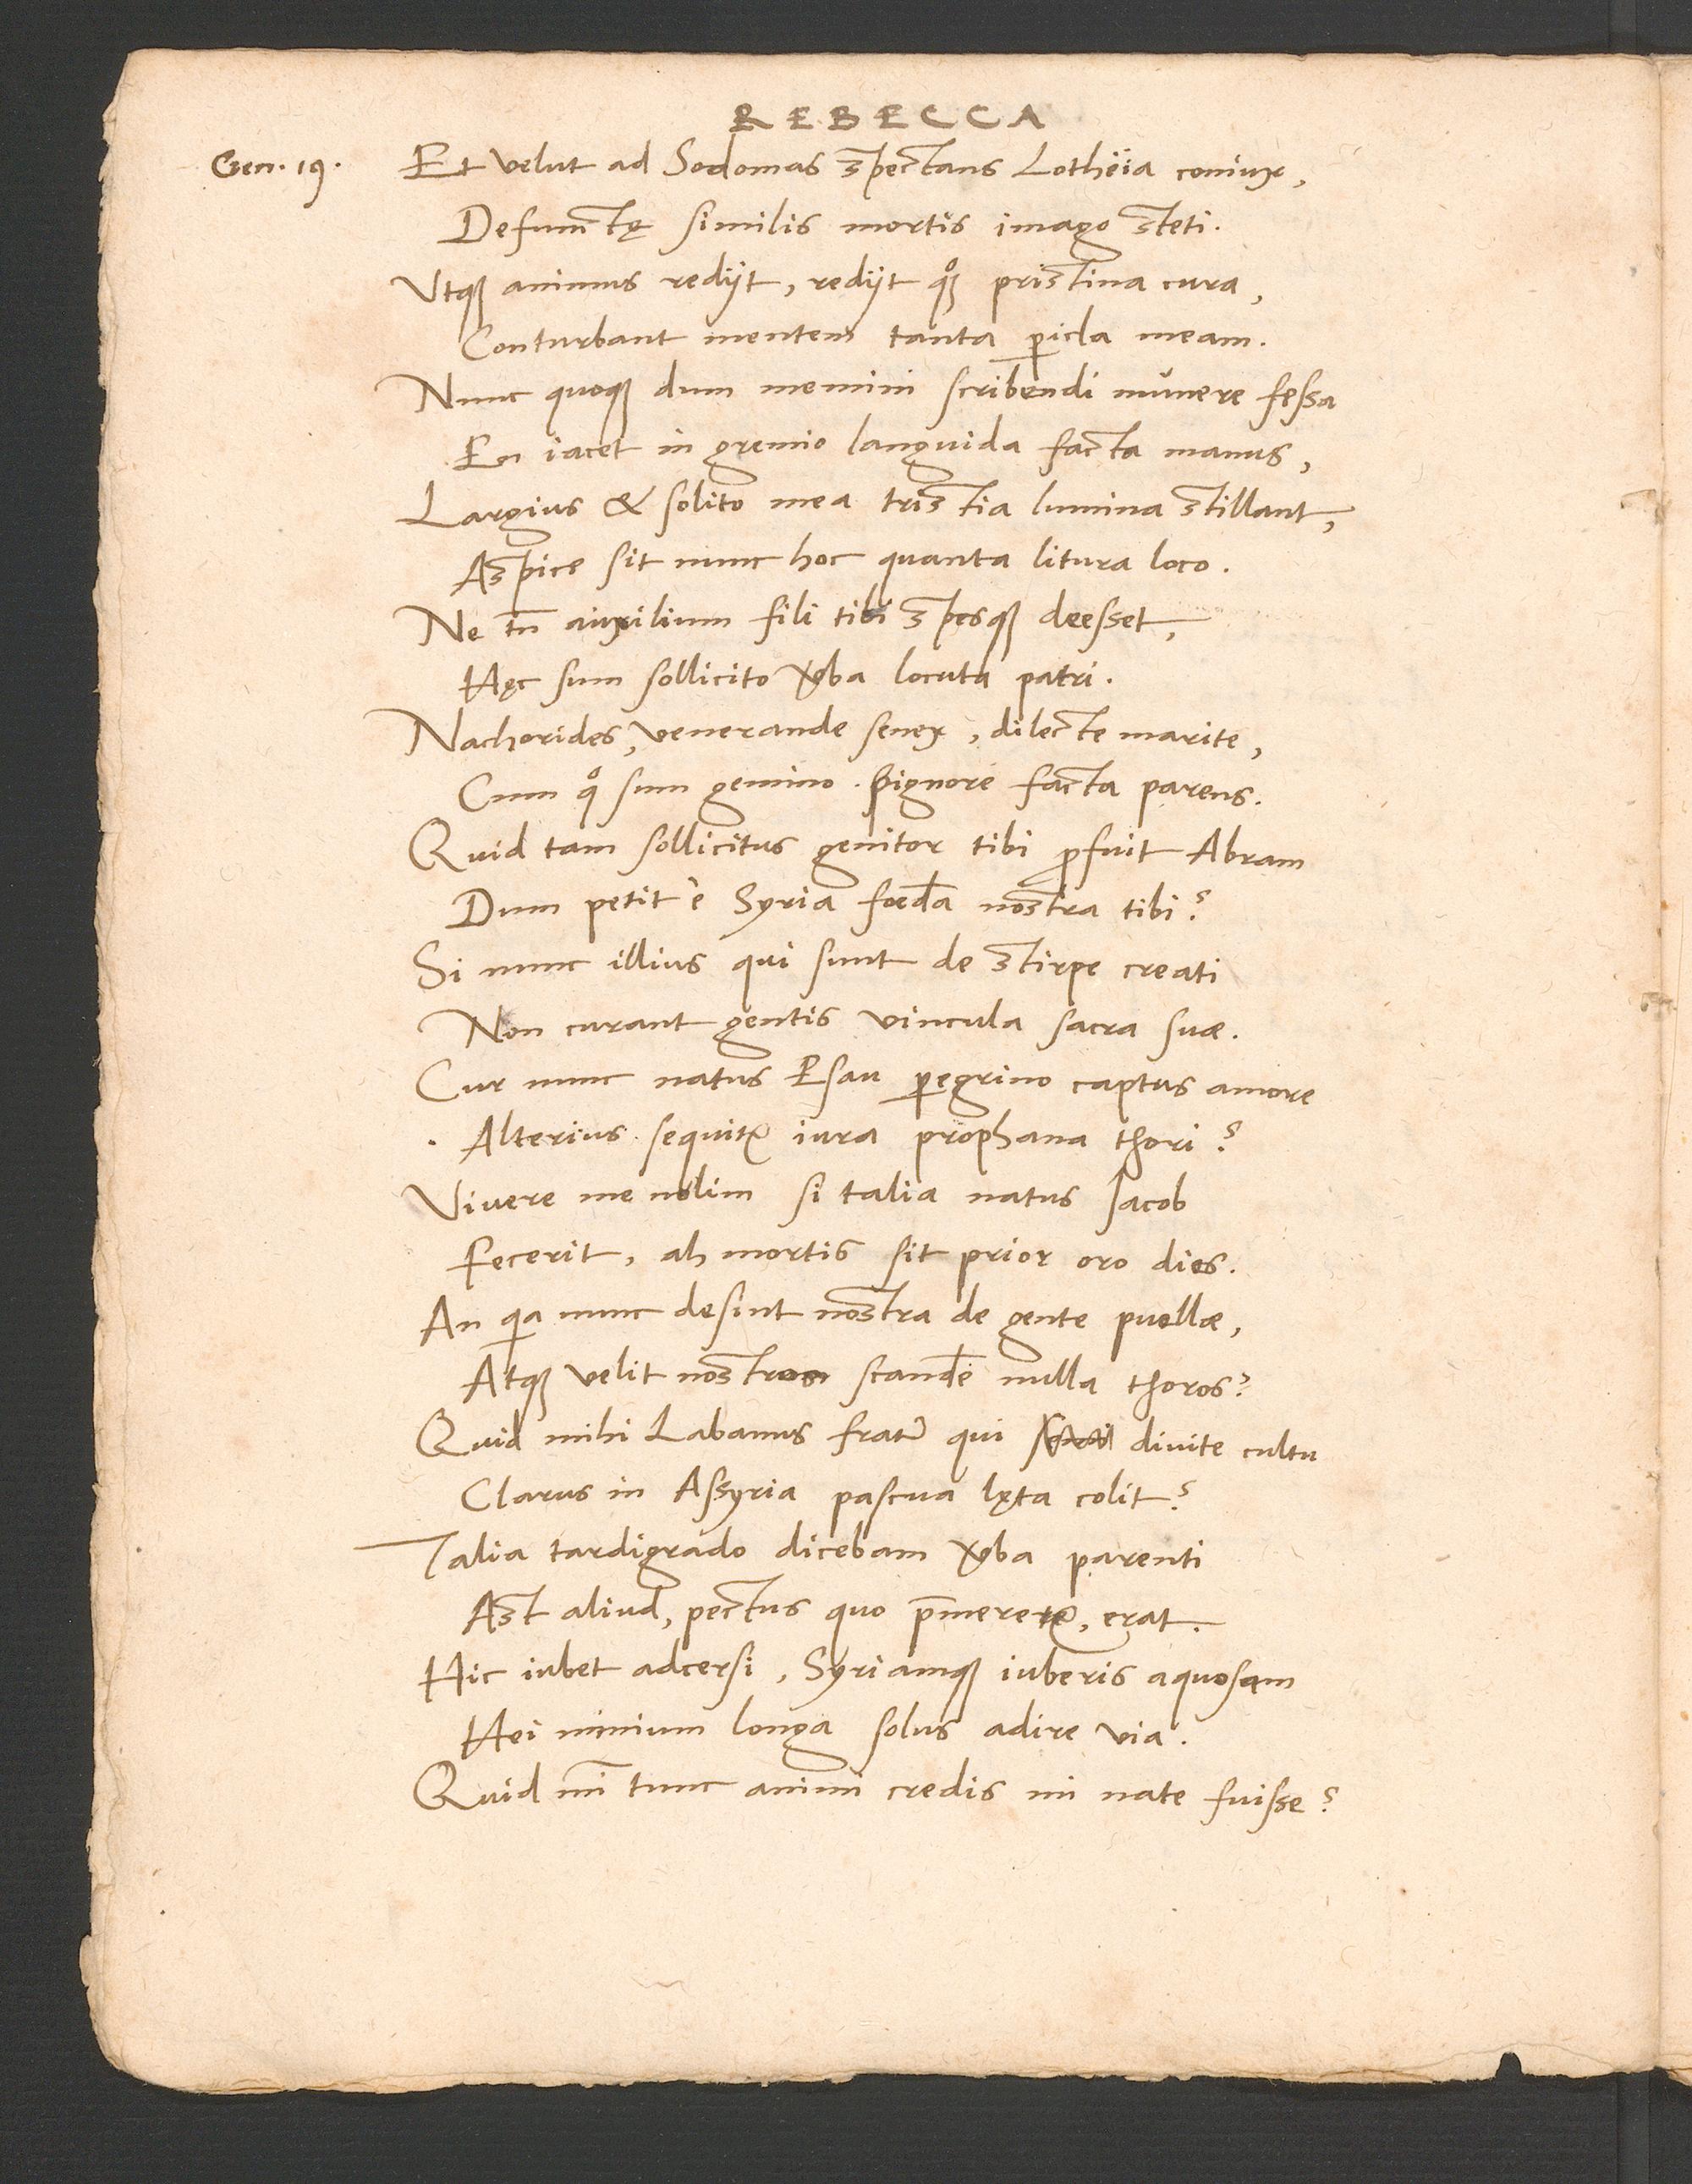 REBECCA
Gen. 19. Et velut ad Sodomas spectans Lotheïa coniux,
Defunctę similis mortis imago steti.
Utqꝫ animus redijt, redijt qͦꝫ pristina cura,
Conturbant mentem tanta ꝑicla meam.
Nunc quoqꝫ dum memini scribendi munere fessa
En iacet in gremio languida facta manus,
Largius & solito mea tristia lumina stillant,
Aspice sit nunc hoc quanta litura loco.
Ne tn̄ auxilium fili tibi spesqꝫ deesset,
Hęc sum sollicito v̄ba locuta patri.
Nachorides, venerande senex, dilecte marite,
Cum qͦ sum gemino pignore facta parens.
Quid tam sollicitus genitor tibi ꝓfuit Abram
Dum petit è Syria foed̄a nostra tibi?
Si nunc illius qui sunt de stirpe creati
Non curant gentis vincula sacra suæ.
Cur nunc natus Esau ꝑegrino captus amore
Alterius sequitꝛ iura prophana thori?
Vivere me nolim si talia natus Jacob
Fecerit, ah mortis sit prior oro dies.
An qa nunc desint nostra de gente puellæ,
Atqꝫ velit nostros scand̄e nulla thoros?
Quid mihi Labanus frat̄ qui divite cultu
Clarus in Assyria pascua lęta colit?
Talia tardigrado dicebam v̄ba parenti
Ast aliud, pectus quo p̄meretꝛ, erat.
Hic iubet adcersi, Syriamqꝫ iuberis aquosam
Hei nimium longa solus adire via.
Quid mī tunc animi credis mi nate fuisse?